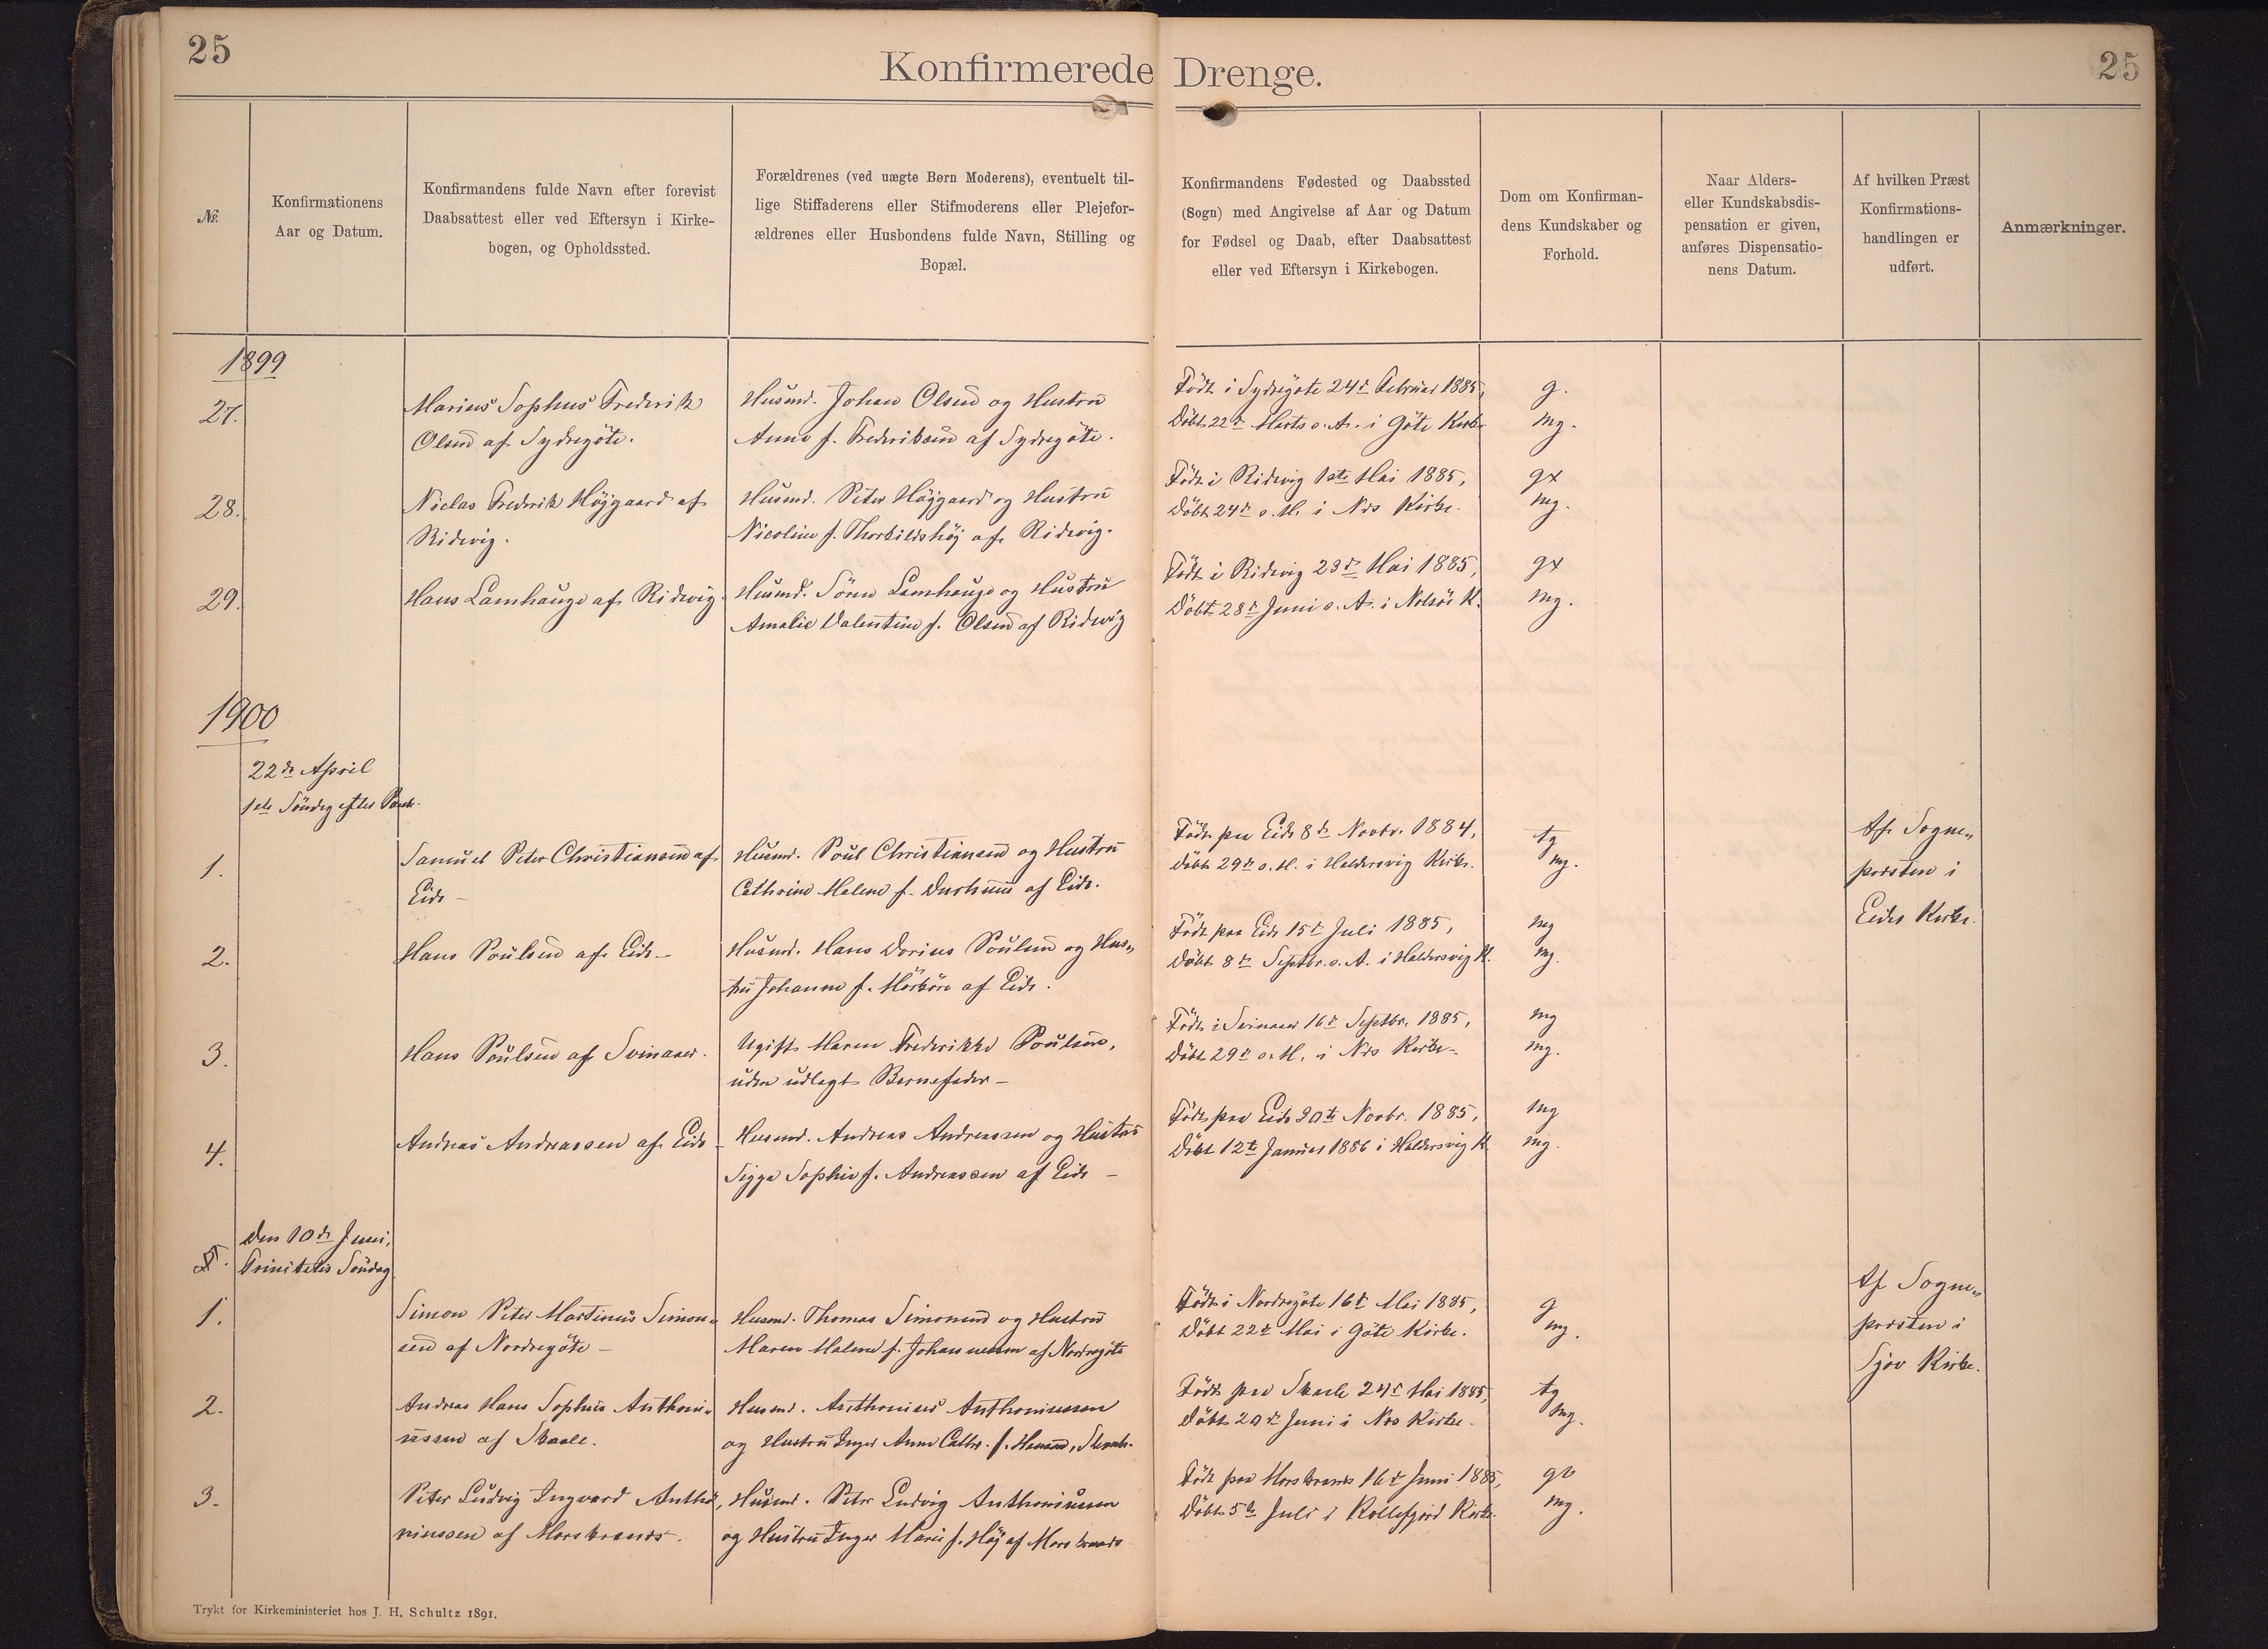 25
25
Konfirmerede Drenge.
№.
Konfirmationens
Aar og Datum.
Konfirmandens fulde Navn efter forevist
Daabsattest eller ved Eftersyn i Kirke-
bogen, og Opholdssted.
Forældrenes (ved uægte Børn Moderens), eventuelt til-
lige Stiffaderens eller Stifmoderens eller Plejefor-
ældrenes eller Husbondens fulde Navn, Stilling og
Bopæl.
Konfirmandens Fødested og Daabssted
(Sogn) med Angivelse af Aar og Datum
for Fødsel og Daab, efter Daabsattest
eller ved Eftersyn i Kirkebogen.
Dom om Konfirman-
dens Kundskaber og
Forhold.
Naar Alders-
eller Kundskabsdis-
pensation er given,
anføres Dispensatio-
nens Datum.
Af hvilken Præst
Konfirmations-
handlingen er
udført.
Anmærkninger.
1899
27.
Marius Sophus Frederik
Olsen af Sydregöte.
Husmd. Johan Olsen og Hustru
Anne f. Frederiksen af Sydregöte.
Födt i Sydregöte 24de Februar 1885,
Döbt 22de Marts s. A. i Göte Kirke
g.
mg.
28.
Niclas Frederik Höjgaard af
Ridevig.
Husmd. Peter Höjgaard og Hustru
Nicoline f. Thorkildshöj af Ridevig.
Födt i Ridevig 1ste Mai 1885,
Döbt 24de s. M. i Næs Kirke.
gx
mg.
29.
Hans Lamhauge af Ridevig.
Husmd. Sören Lamhauge og Hustru
Amalie Valentine f. Olsen af Ridevig
Födt i Ridevig 23de Mai 1885,
Döbt 28de Juni s. A. i Nolsös K.
gx
mg.
1900
22de April
1ste Söndag efter Paask.
1.
Samuel Peter Christiansen af
Eide -
Husmd. Poul Christiansen og Hustru
Cathrine Malene f. Durhuus af Eide.
Födt paa Eide 8de Novbr. 1884,
döbt 29de s. M. i Haldersvig Kirke.
tg
mg.
Af Sogne-
præsten i
Eides Kirke.
2.
Hans Poulsen af Eide -
Husmd. Hans Dorius Poulsen og Hus-
tru Johanne f. Mörköre af Eide.
Födt paa Eide 15de Juli 1885,
Döbt 8de Septbr. s. A. i Haldersvig K.
mg
mg.
3.
Hans Poulsen af Svinaaer.
Ugift Maren Frederikke Poulsen,
uden udlagt Barnefader -
Födt i Svinaaer 16de Septbr. 1885,
Döbt 29de s. M. i Næs Kirke -
mg
mg.
4.
Andreas Andreassen af Eide -
Husmd. Andreas Andreassen og Hustru
Sigga Sophie f. Andreassen af Eide -
Födt paa Eide 30te Novbr. 1885,
Döbt 12te Januar 1886 i Haldersvig K.
mg
mg.
Den 10de Juni,
5. Trinitatis Söndag
1.
Simon Peter Martinus Simon-
sen af Nordregöte -
Husmd. Thomas Simonsen og Hustru
Maren Malene f. Johannesen af Nordregöte
Födt i Nordregöte 16de Mai 1885,
Döbt 22de Mai i Göte Kirke.
g
mg.
Af Sogne-
præsten i
Sjov Kirke.
2.
Andreas Hans Sophus Anthoni-
ussen af Skaale.
Husmd. Anthonius Anthoniussen
og Hustru Inger Anne Cathr. f. Hansen, Skaale.
Födt paa Skaale 24de Mai 1885,
Döbt 20de Juni i Næs Kirke.
tg
mg.
3.
Peter Ludvig Ingvard Antho-
niussen af Morskranes.
Husmd. Peter Ludvig Anthoniussen
og Hustru Inger Marie f. Höj af Morskranes
Födt paa Morskranes 16de Juni 1885,
Döbt 5te Juli i Kollefjord Kirke.
mg.
Trykt for Kirkeministeriet hos J. H. Schultz 1891.